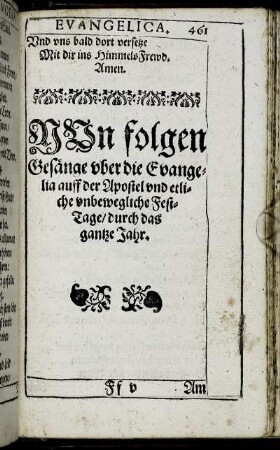 EVANGELICA. 461
Vnd vns bald dort versetze
Mit dir ins Himmels Frewd.
Amen.
NVn folgen
Gesänge vber die Evange-
lia auff der Apostel vnd etli-
che vnbewegliche Fest-
Tage/ durch das
gantze Jahr.
Ff v Am